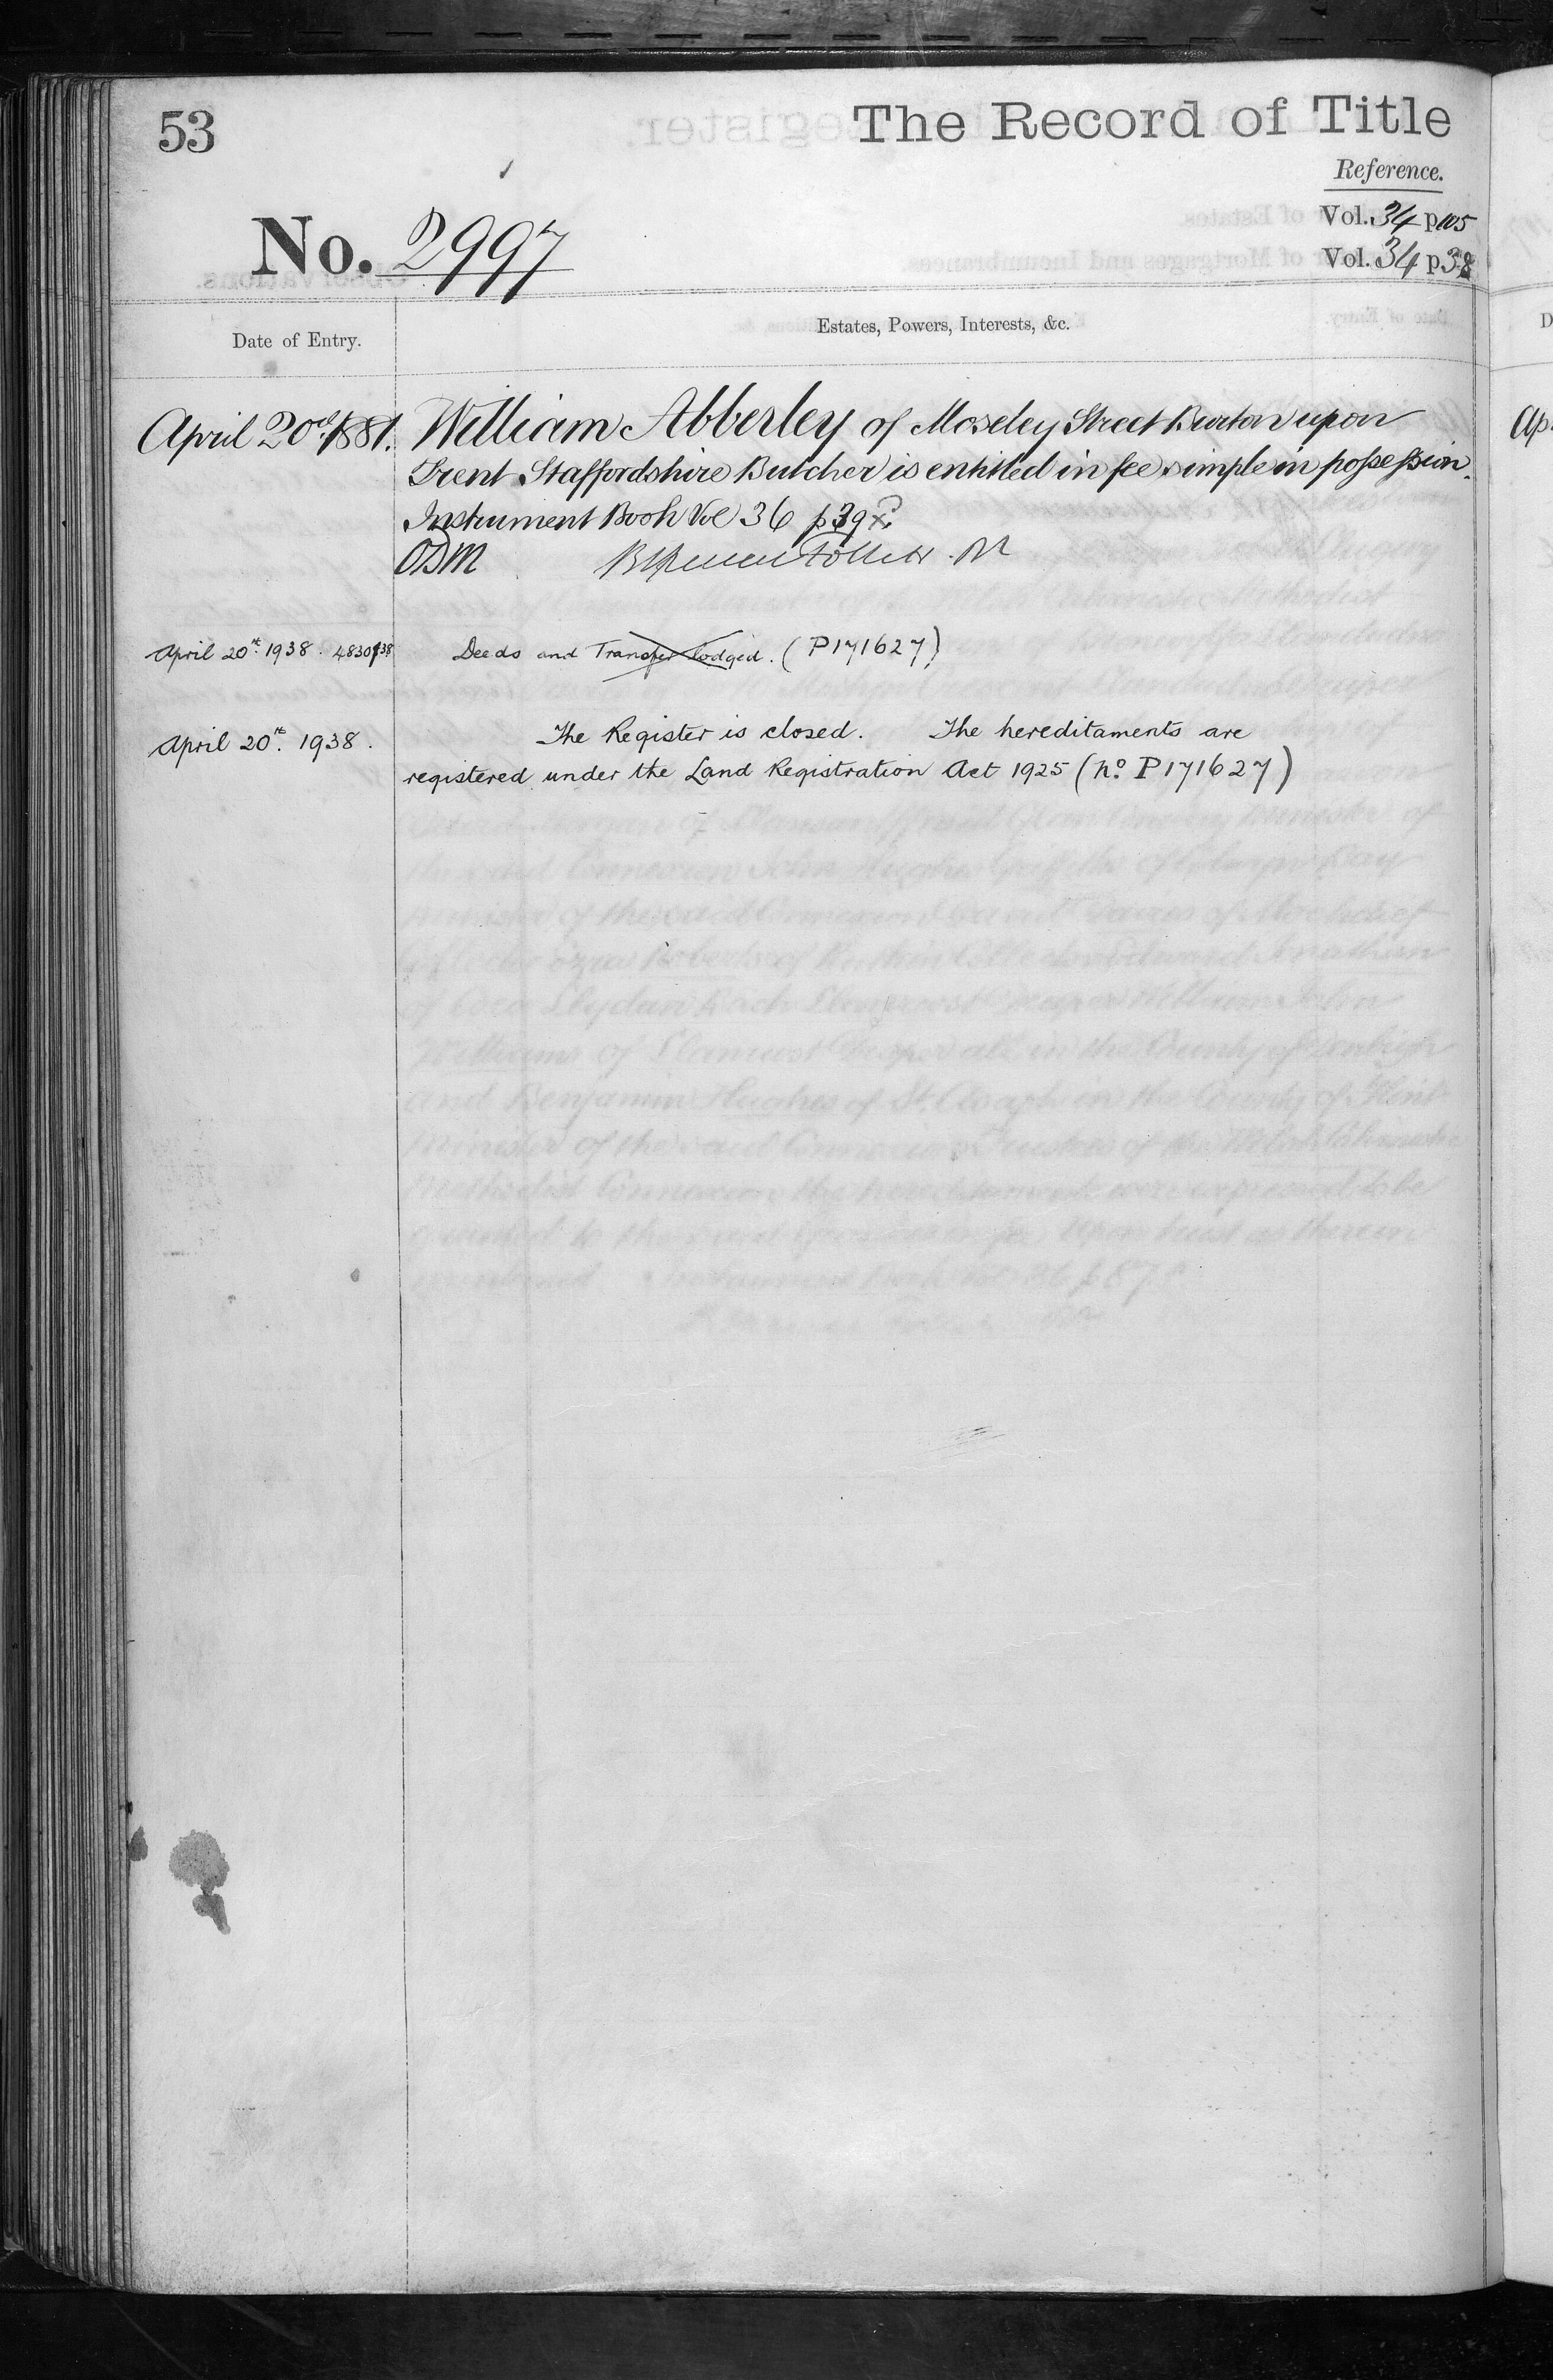 53
The Record of Title
Reference.
Vol. 34 p 105
Vol. 34 p 38
No. 2997
Date of Entry.
Estates, Powers, Interests, &c.
April 20th 1881. William Abberley of Moseley Street Burton upon
Trent Staffordshire Butcher is entitled in fee simple in possession.
Instrument Book Vol 36 p 39
ODM
April 20th. 1938. 4830/38 Deeds and Transfer lodged. (P171627)
April 20th. 1938. The Register is closed. The hereditaments are
registered under the Land Registration Act 1925 (No. P171627)